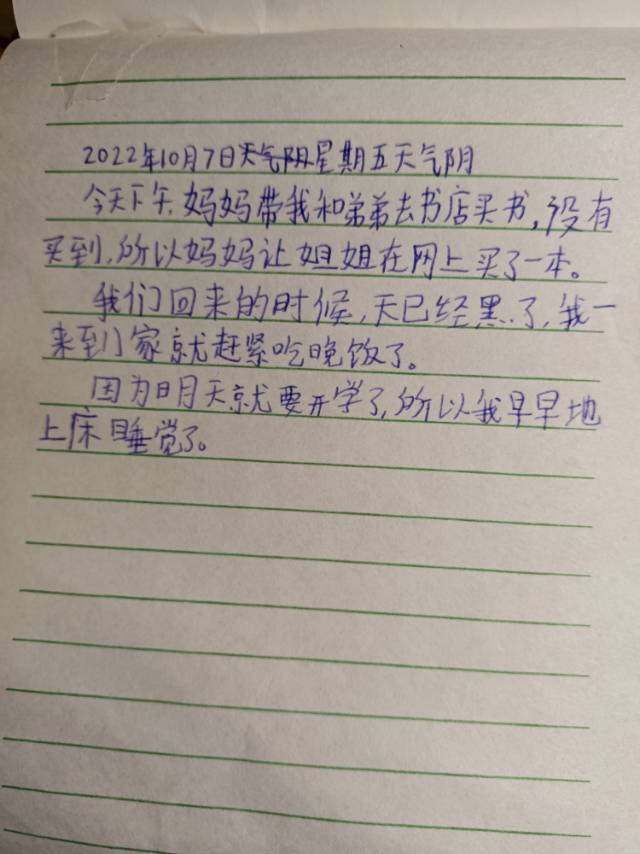 2022年10月7日天气阴星期五天气阴
今天下午,妈妈带我和弟弟去书店买书,没有
买到,所以妈妈让姐姐在网上买了一本。
我们回来的时候,天已经黑了,我一
来到家就赶紧吃晚饭了。
因为明天就要开学了,所以我早早地
上床睡觉了。